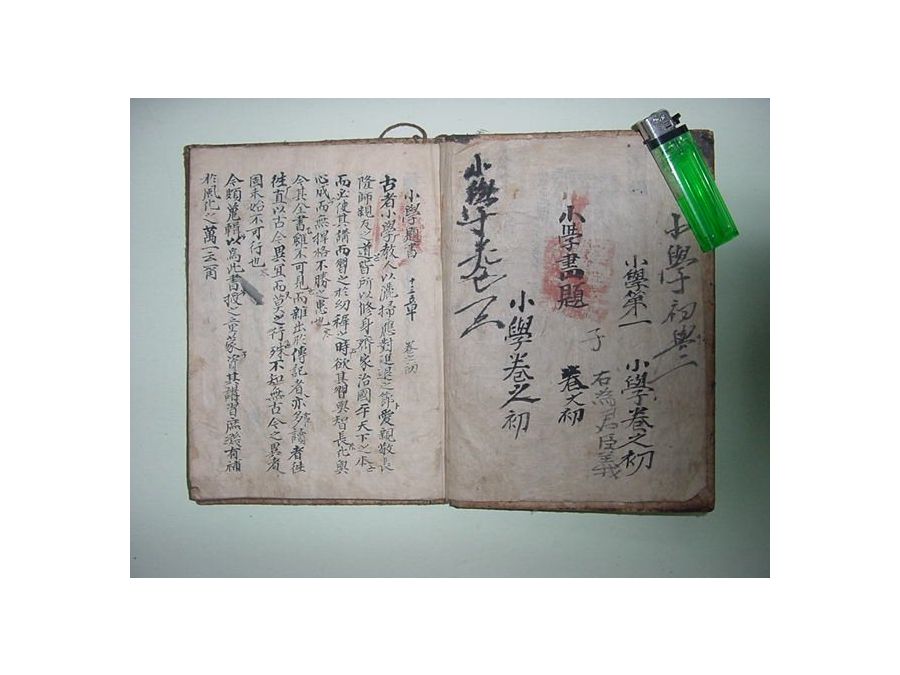 小學初
小學第一
小學卷之初
小學書題
子
右為君臣之義
卷之初
小學卷之初
小學卷之
小學題書
卷之初
古者小學教人以灑掃應對進退之節愛親敬長
隆師親友之道皆所以修身齊家治國平天下之本
而必使其講而習之於幼穉之時欲其習與智長化與
心成而無捍格不勝之患也
今其全書雖不可見而雜出於傳記者亦多讀者往
往直以古今異宜而莫之行殊不知無古今之異者
固未始不可行也
今頗蒐輯以爲此書授之童蒙資其講習庶幾有補
於風化之萬一云爾